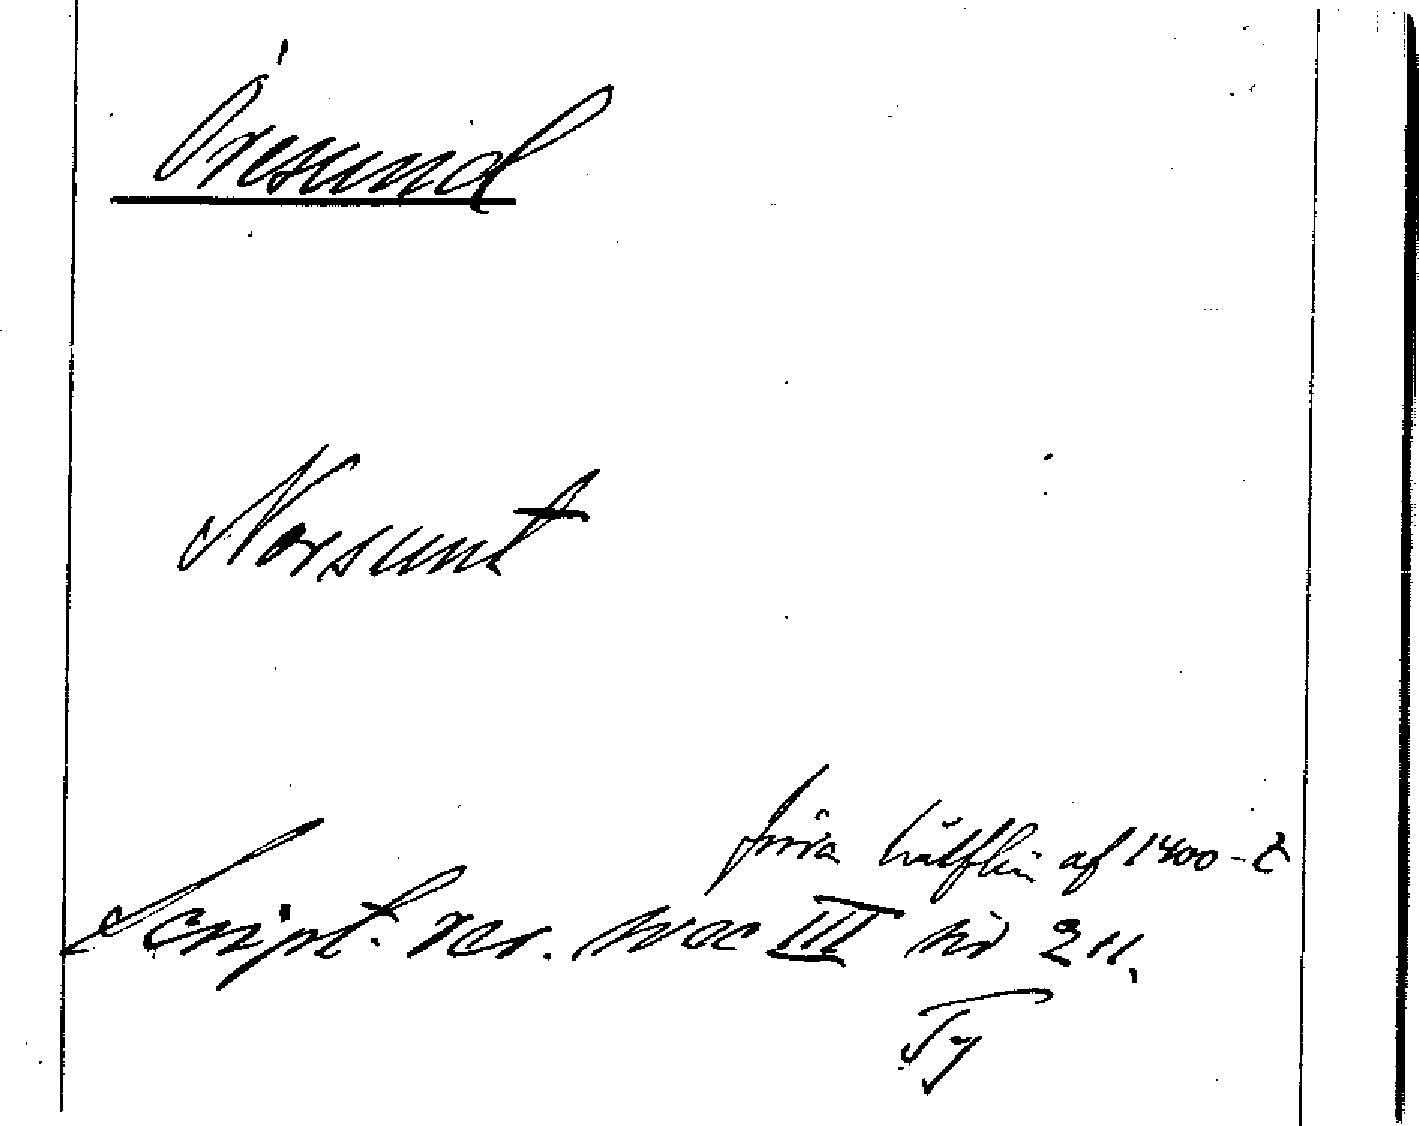 Öresund
Norsunt
förra hälften af 1400-t
Script. rer. svec III sid 211.
Ty